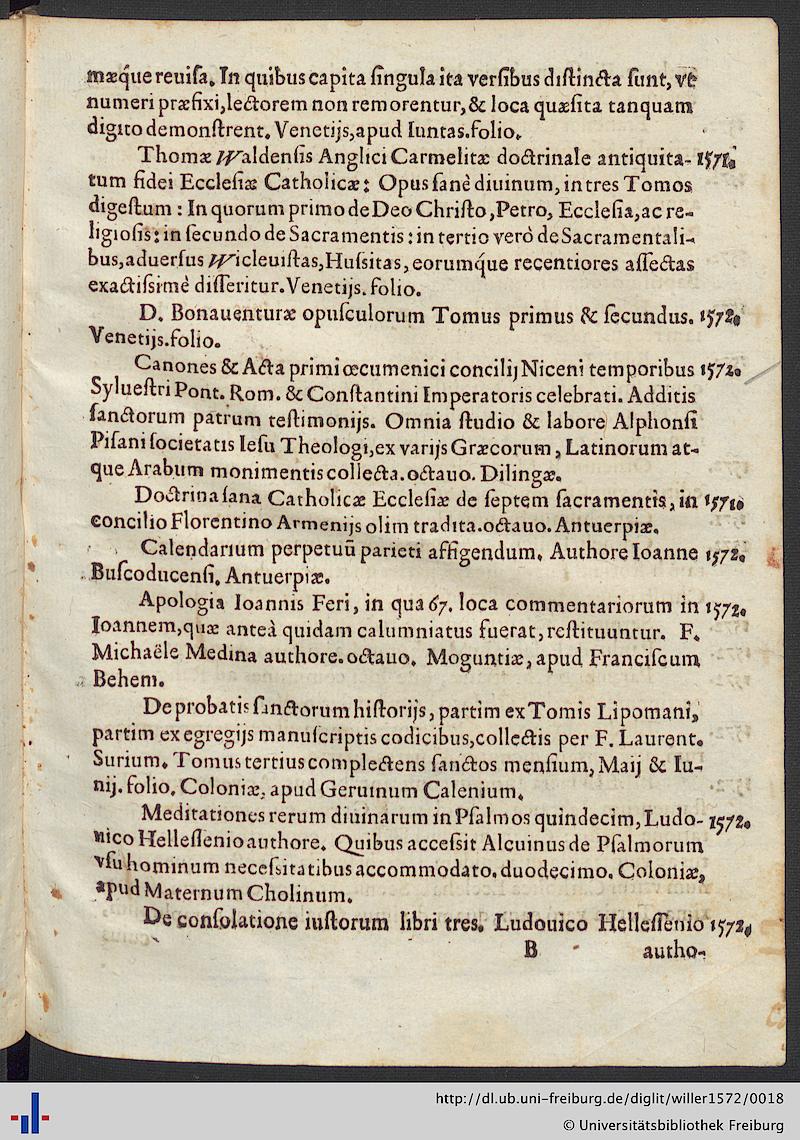 mæq́ue reuiſa. In quibus capita ſingula ita verſibus diſtincta ſunt, vt
numeri præfixi, lectorem non remorentur, & loca quæſita tanquam
digito demonſtrent. Venetijs, apud Iuntas. folio.
Thomæ Waldenſis Anglici Carmelitæ doctrinale antiquita- 1571.
tum fidei Eccleſiæ Catholicæ: Opus ſanè diuinum, in tres Tomos
digeſtum: In quorum primo de Deo Chriſto, Petro, Eccleſia, ac re-
ligioſis: in ſecundo de Sacramentis: in tertio verò de Sacramentali-
bus, aduerſus Wicleuiſtas, Huſsitas, eorumq́ue recentiores aſſectas
exactiſsimè diſſeritur. Venetijs. folio.
D. Bonauenturæ opuſculorum Tomus primus & ſecundus. 1572.
Venetijs. folio.
Canones & Acta primi œcumenici concilij Niceni temporibus 1572.
Sylueſtri Pont. Rom. & Conſtantini Imperatoris celebrati. Additis
ſanctorum patrum teſtimonijs. Omnia ſtudio & labore Alphonſi
Piſani ſocietatis Ieſu Theologi, ex varijs Græcorum, Latinorum at-
que Arabum monimentis collecta. octauo. Dilingæ.
Doctrina ſana Catholicæ Eccleſiæ de ſeptem ſacramentis, in 1571.
concilio Florentino Armenijs olim tradita. octauo. Antuerpiæ.
Calendarium perpetuū parieti affigendum. Authore Ioanne 1572.
Buſcoducenſi. Antuerpiæ.
Apologia Ioannis Feri, in qua 67. loca commentariorum in 1572.
Ioannem, quæ anteà quidam calumniatus fuerat, reſtituuntur. F.
Michaële Medina authore. octauo. Moguntiæ, apud Franciſcum
Behem.
De probatis ſanctorum hiſtorijs, partim ex Tomis Lipomani,
partim ex egregijs manuſcriptis codicibus, collectis per F. Laurent.
Surium. Tomus tertius complectens ſanctos menſium, Maij & Iu-
nij. folio. Coloniæ, apud Geruinum Calenium.
Meditationes rerum diuinarum in Pſalmos quindecim, Ludo- 1572.
uico Helleſſenio authore. Quibus acceſsit Alcuinus de Pſalmorum
vſu hominum neceſsitatibus accommodato. duodecimo. Coloniæ,
apud Maternum Cholinum.
De conſolatione iuſtorum libri tres. Ludouico Helleſſenio 1572.
B autho-
http://dl.ub.uni-freiburg.de/diglit/willer1572/0018
© Universitätsbibliothek Freiburg